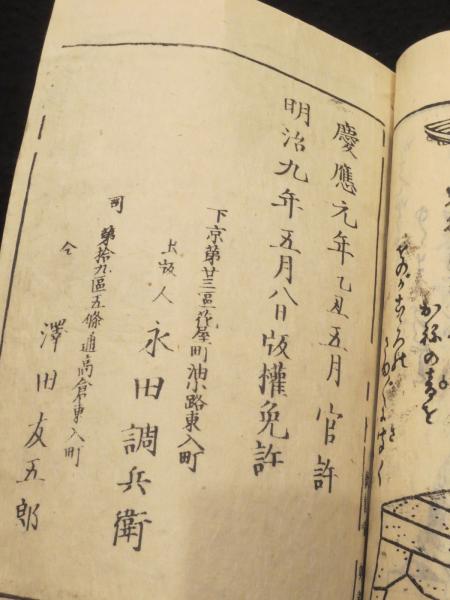 慶應元年乙丑五月官許
明治九年五月八日版權免許
下京第廿三區花屋町油小路東入町
出版人 永田調兵衛
同 第拾九區五條通高倉東入町
仝 澤田友五郎
かねの音を